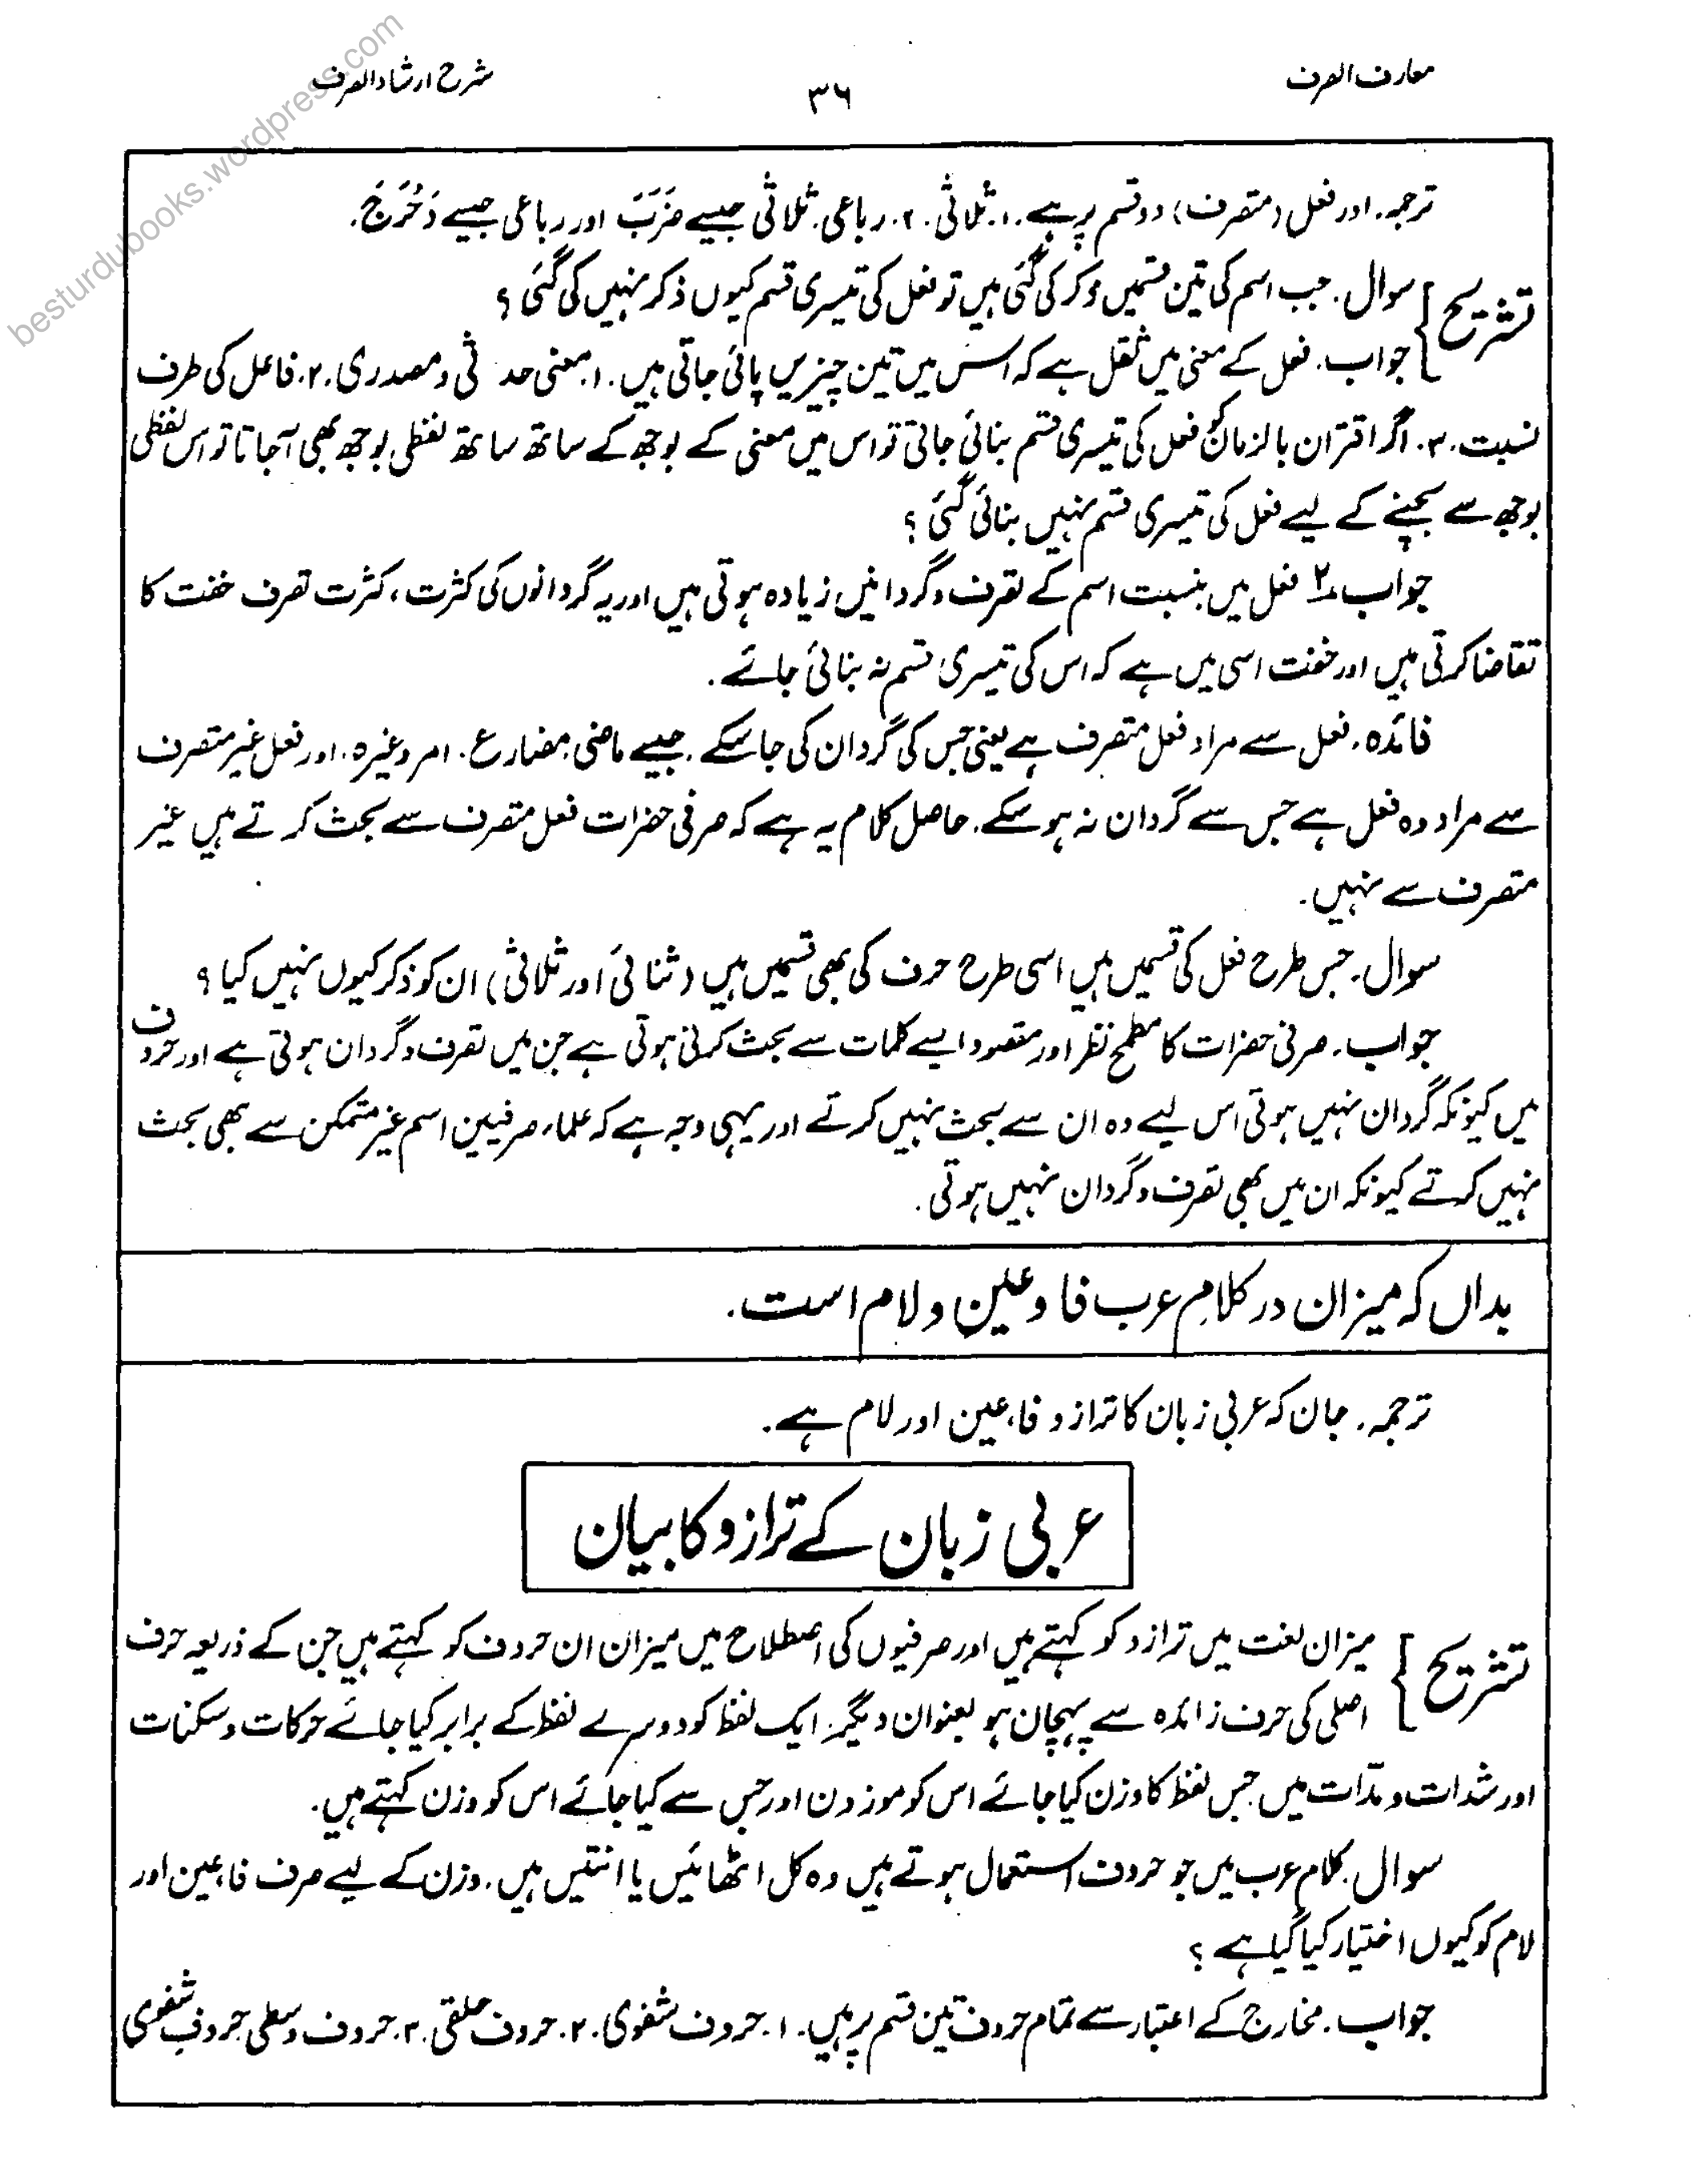 معارف الصرف
۳۶
شرح ارشاد الصرف
besturdubooks.wordpress.com
ترجمہ۔ اور فعل (متصرف) دو قسم پر ہے۔ ۱۔ ثلاثی۔ ۲۔ رباعی۔ ثلاثی جیسے ضَرَبَ اور رباعی جیسے دَحْرَجَ۔
تشریح } سوال۔ جب اسم کی تین قسمیں ذکر کی گئی ہیں تو فعل کی تیسری قسم کیوں ذکر نہیں کی گئی ؟
جواب۔ فعل کے معنی میں ثقل ہے کہ اس میں تین چیزیں پائی جاتی ہیں۔ ۱۔ معنی حدثی و مصدری۔ ۲۔ فاعل کی طرف
نسبت۔ ۳۔ اگر اقتران بالزمان کو فعل کی تیسری قسم بنائی جاتی تو اس میں معنی کے بوجھ کے ساتھ ساتھ لفظی بوجھ بھی آجاتا تو اس لفظی
بوجھ سے بچنے کے لیے فعل کی تیسری قسم نہیں بنائی گئی ؟
جواب ۲ فعل میں بنسبت اسم کے تصرف و گردانیں زیادہ ہوتی ہیں اور یہ گردانوں کی کثرت، کثرت تصرف خفت کا
تقاضا کرتی ہیں اور خفت اسی میں ہے کہ اس کی تیسری قسم نہ بنائی جائے۔
فائدہ۔ فعل سے مراد فعل متصرف ہے یعنی جس کی گردان کی جاسکے۔ جیسے ماضی، مضارع۔ امر وغیرہ۔ اور فعل غیر متصرف
سے مراد وہ فعل ہے جس سے گردان نہ ہو سکے۔ حاصل کلام یہ ہے کہ صرفی حضرات فعل متصرف سے بحث کرتے ہیں غیر
متصرف سے نہیں۔
سوال۔ جس طرح فعل کی قسمیں ہیں اسی طرح حرف کی بھی قسمیں ہیں (ثنائی اور ثلاثی) ان کو ذکر کیوں نہیں کیا ؟
جواب۔ صرفی حضرات کا مطمح نظر اور مقصود ایسے کلمات سے بحث کرنی ہوتی ہے جن میں تصرف و گردان ہوتی ہے اور حروف
میں کیونکہ گردان نہیں ہوتی اس لیے وہ ان سے بحث نہیں کرتے اور یہی وجہ ہے کہ علماء صرفیین اسم غیر متمکن سے بھی بحث
نہیں کرتے کیونکہ ان میں بھی تصرف و گردان نہیں ہوتی۔
بداں کہ میزان در کلامِ عرب فا و عین و لام است۔
ترجمہ۔ جان کہ عربی زبان کا ترازو فا، عین اور لام ہے۔
عربی زبان کے ترازو کا بیان
تشریح } میزان لغت میں ترازو کو کہتے ہیں اور صرفیوں کی اصطلاح میں میزان ان حروف کو کہتے ہیں جن کے ذریعہ حرف
اصلی کی حرف زائدہ سے پہچان ہو بعنوان دیگر۔ ایک لفظ کو دوسرے لفظ کے برابر کیا جائے حرکات و سکنات
اور شدات و مدّات میں جس لفظ کا وزن کیا جائے اس کو موزون اور جس سے کیا جائے اس کو وزن کہتے ہیں۔
سوال۔ کلام عرب میں جو حروف استعمال ہوتے ہیں وہ کل اٹھائیس یا انتیس ہیں۔ وزن کے لیے صرف فا، عین اور
لام کو کیوں اختیار کیا گیا ہے ؟
جواب۔ مخارج کے اعتبار سے تمام حروف تین قسم پر ہیں۔ ۱۔ حروف شفوی۔ ۲۔ حروف حلقی۔ ۳۔ حروف وسطی حروفِ شفوی